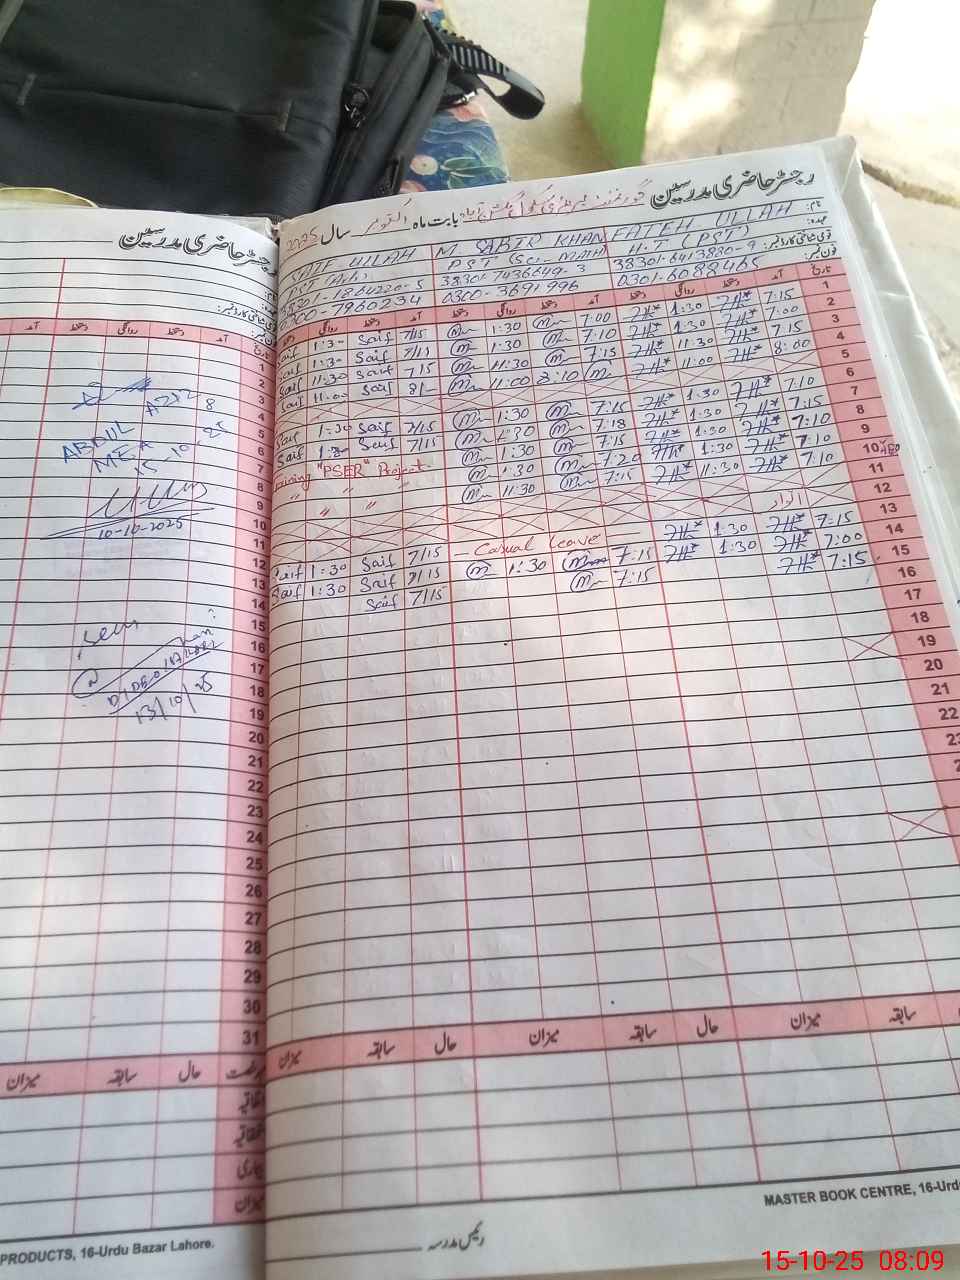 رجسٹر حاضری مدرسین
گورنمنٹ پرائمری سکول
بابت ماہ اکتوبر سال 2025
نام:
عہدہ:
قومی شناختی کارڈ نمبر:
فون نمبر:
SAIF ULLAH M SABIR KHAN FATEH ULLAH
PST (Arts) PST (Sci-MATH) H.T (PST)
38301-7436649-3 38301-6413830-9
0300-7960234 0300-3691996 0301-6088465
دستخط روانگی دستخط آمد دستخط روانگی دستخط آمد دستخط روانگی دستخط آمد تاریخ
Saif 1:30 Saif 7/15 1:30 7:00 1:30 7:15 1
Saif 1:30 Saif 7/15 1:30 7:10 1:30 7:00 2
Saif 11:30 Saif 7/15 11:30 7:15 11:30 7:15 3
Saif 11:00 Saif 8/- 11:00 8:10 11:00 8:00 4
5
Saif 1:30 Saif 7/15 1:30 7:15 1:30 7:10 6
Saif 1:30 Saif 7/15 1:30 7:18 1:30 7:15 7
Training "PSER" Project 1:30 7:15 1:30 7:10 8
" " " 1:30 7:20 1:30 7:10 9
" " " 11:30 7:15 11:30 7:10 10
11
اتوار 12
Saif 1:30 Saif 7/15 - Casual Leave - 1:30 7:15 13
Saif 1:30 Saif 7/15 1:30 7:15 1:30 7:00 14
Saif 7/15 7:15 7:15 15
16
17
18
19
20
21
22
23
میزان سابقہ حال میزان سابقہ حال میزان سابقہ
رئیس مدرسہ
MASTER BOOK CENTRE, 16-Urd
رجسٹر حاضری مدرسین
دستخط روانگی دستخط آمد تاریخ
1
2
3
4
5
6
7
8
9
10
11
12
13
14
15
16
17
18
19
20
21
22
23
24
25
26
27
28
29
30
31
ABDUL AZIZ
MEA
15-10-25
10-10-2025
13/10/25
میزان سابقہ حال رخصت
اتفاقیہ
استحقاقیہ
بیماری
میزان
PRODUCTS, 16-Urdu Bazar Lahore.
15-10-25 08:09